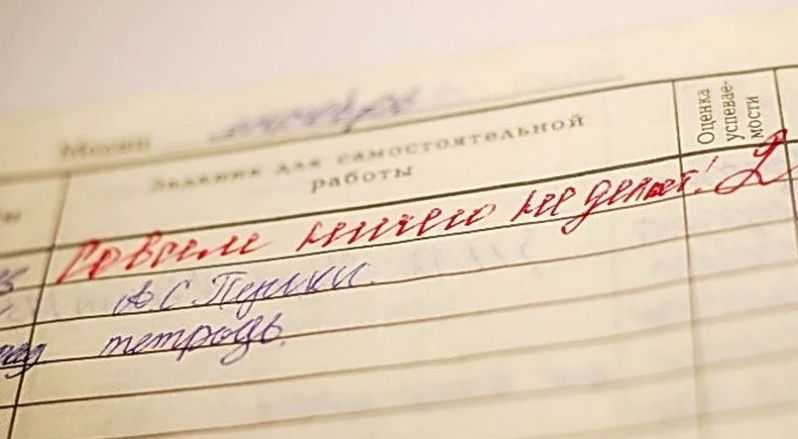 Месяц
Задания для самостоятельной
работы
Оценка
успевае-
мости
Совсем ничего не делает! 2
А.С. Пушки
тетрадь.